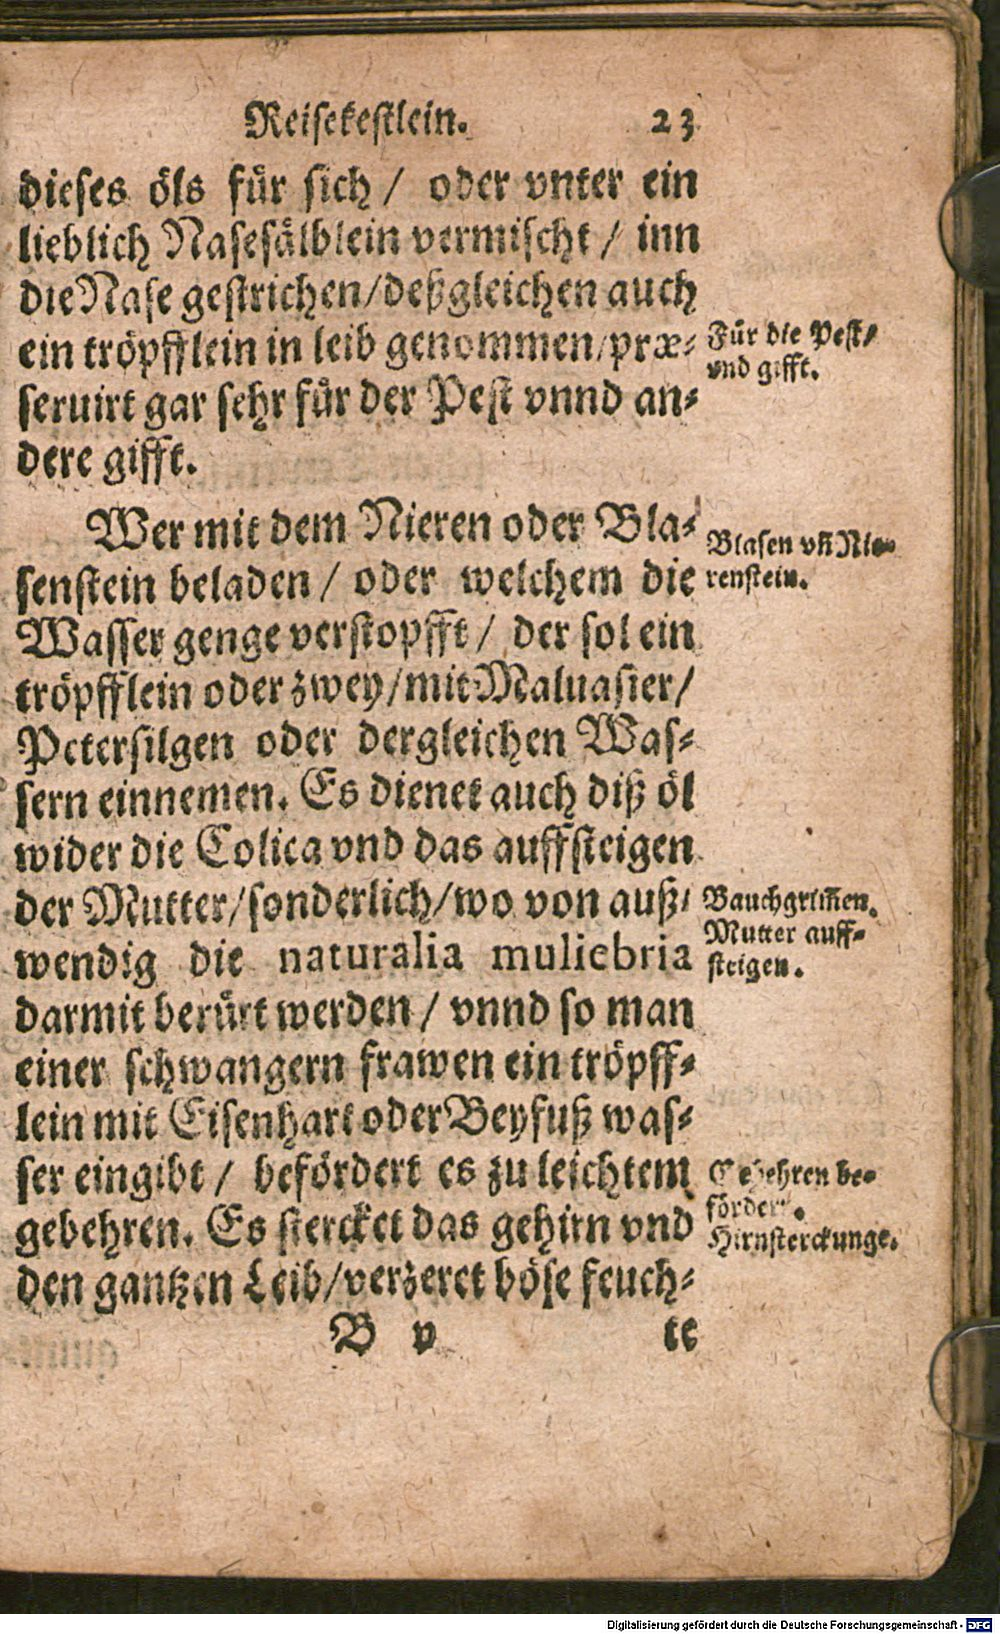 Reisekestlein. 23
dieses öls für sich / oder vnter ein
lieblich Nasesälblein vermischt / inn
die Nase gestrichen/deßgleichen auch
ein tröpfflein in leib genommen/præ-
seruirt gar sehr für der Pest vnnd an-
dere gifft.
Für die Pest/
vnd gifft.
Wer mit dem Nieren oder Bla-
senstein beladen / oder welchem die
Wasser genge verstopfft / der sol ein
tröpfflein oder zwey/mit Maluasier/
Petersilgen oder dergleichen Was-
sern einnemen. Es dienet auch diß öl
wider die Colica vnd das auffsteigen
der Mutter/sonderlich/wo von auß-
wendig die naturalia muliebria
darmit berürt werden / vnnd so man
einer schwangern frawen ein tröpff-
lein mit Eisenhart oder Beyfuß was-
ser eingibt / befördert es zu leichtem
gebehren. Es stercket das gehirn vnd
den gantzen Leib/verzeret böse feuch-
Blasen vñ Nie-
renstein.
Bauchgrim̃en.
Mutter auff-
steigen.
Gebehren be-
förder.
Hirnsterckunge.
B v te
Digitalisierung gefördert durch die Deutsche Forschungsgemeinschaft - DFG